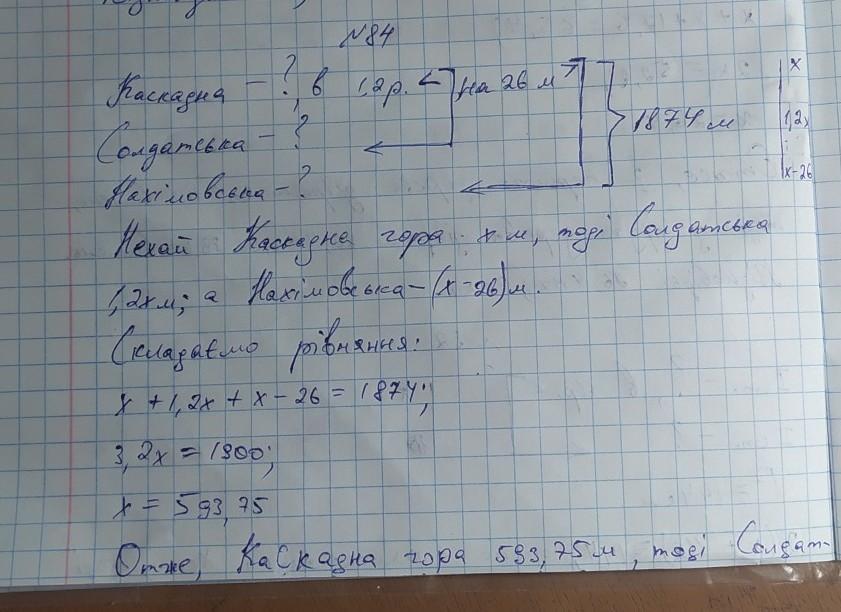 №84
Каскадна – ?, в 1,2 р. на 26 м 1874 м x
Солдатська – ? 1,2x
Нахімовська – ? x-26
Нехай Каскадна гора x м, тоді Солдатська
1,2x м; а Нахімовська – (x-26) м.
Складаємо рівняння:
x + 1,2x + x - 26 = 1874;
3,2x = 1900;
x = 593,75
Отже, Каскадна гора 593,75 м, тоді Солдат-